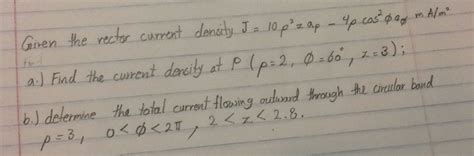 Given the rector current density J = 10ρ²z aρ - 4ρ cos²ϕ aϕ mA/m²
a.) Find the current density at P (ρ=2, ϕ=60°, z=3);
b.) determine the total current flowing outward through the circular band
ρ=3, 0<ϕ<2π, 2<z<2.8.